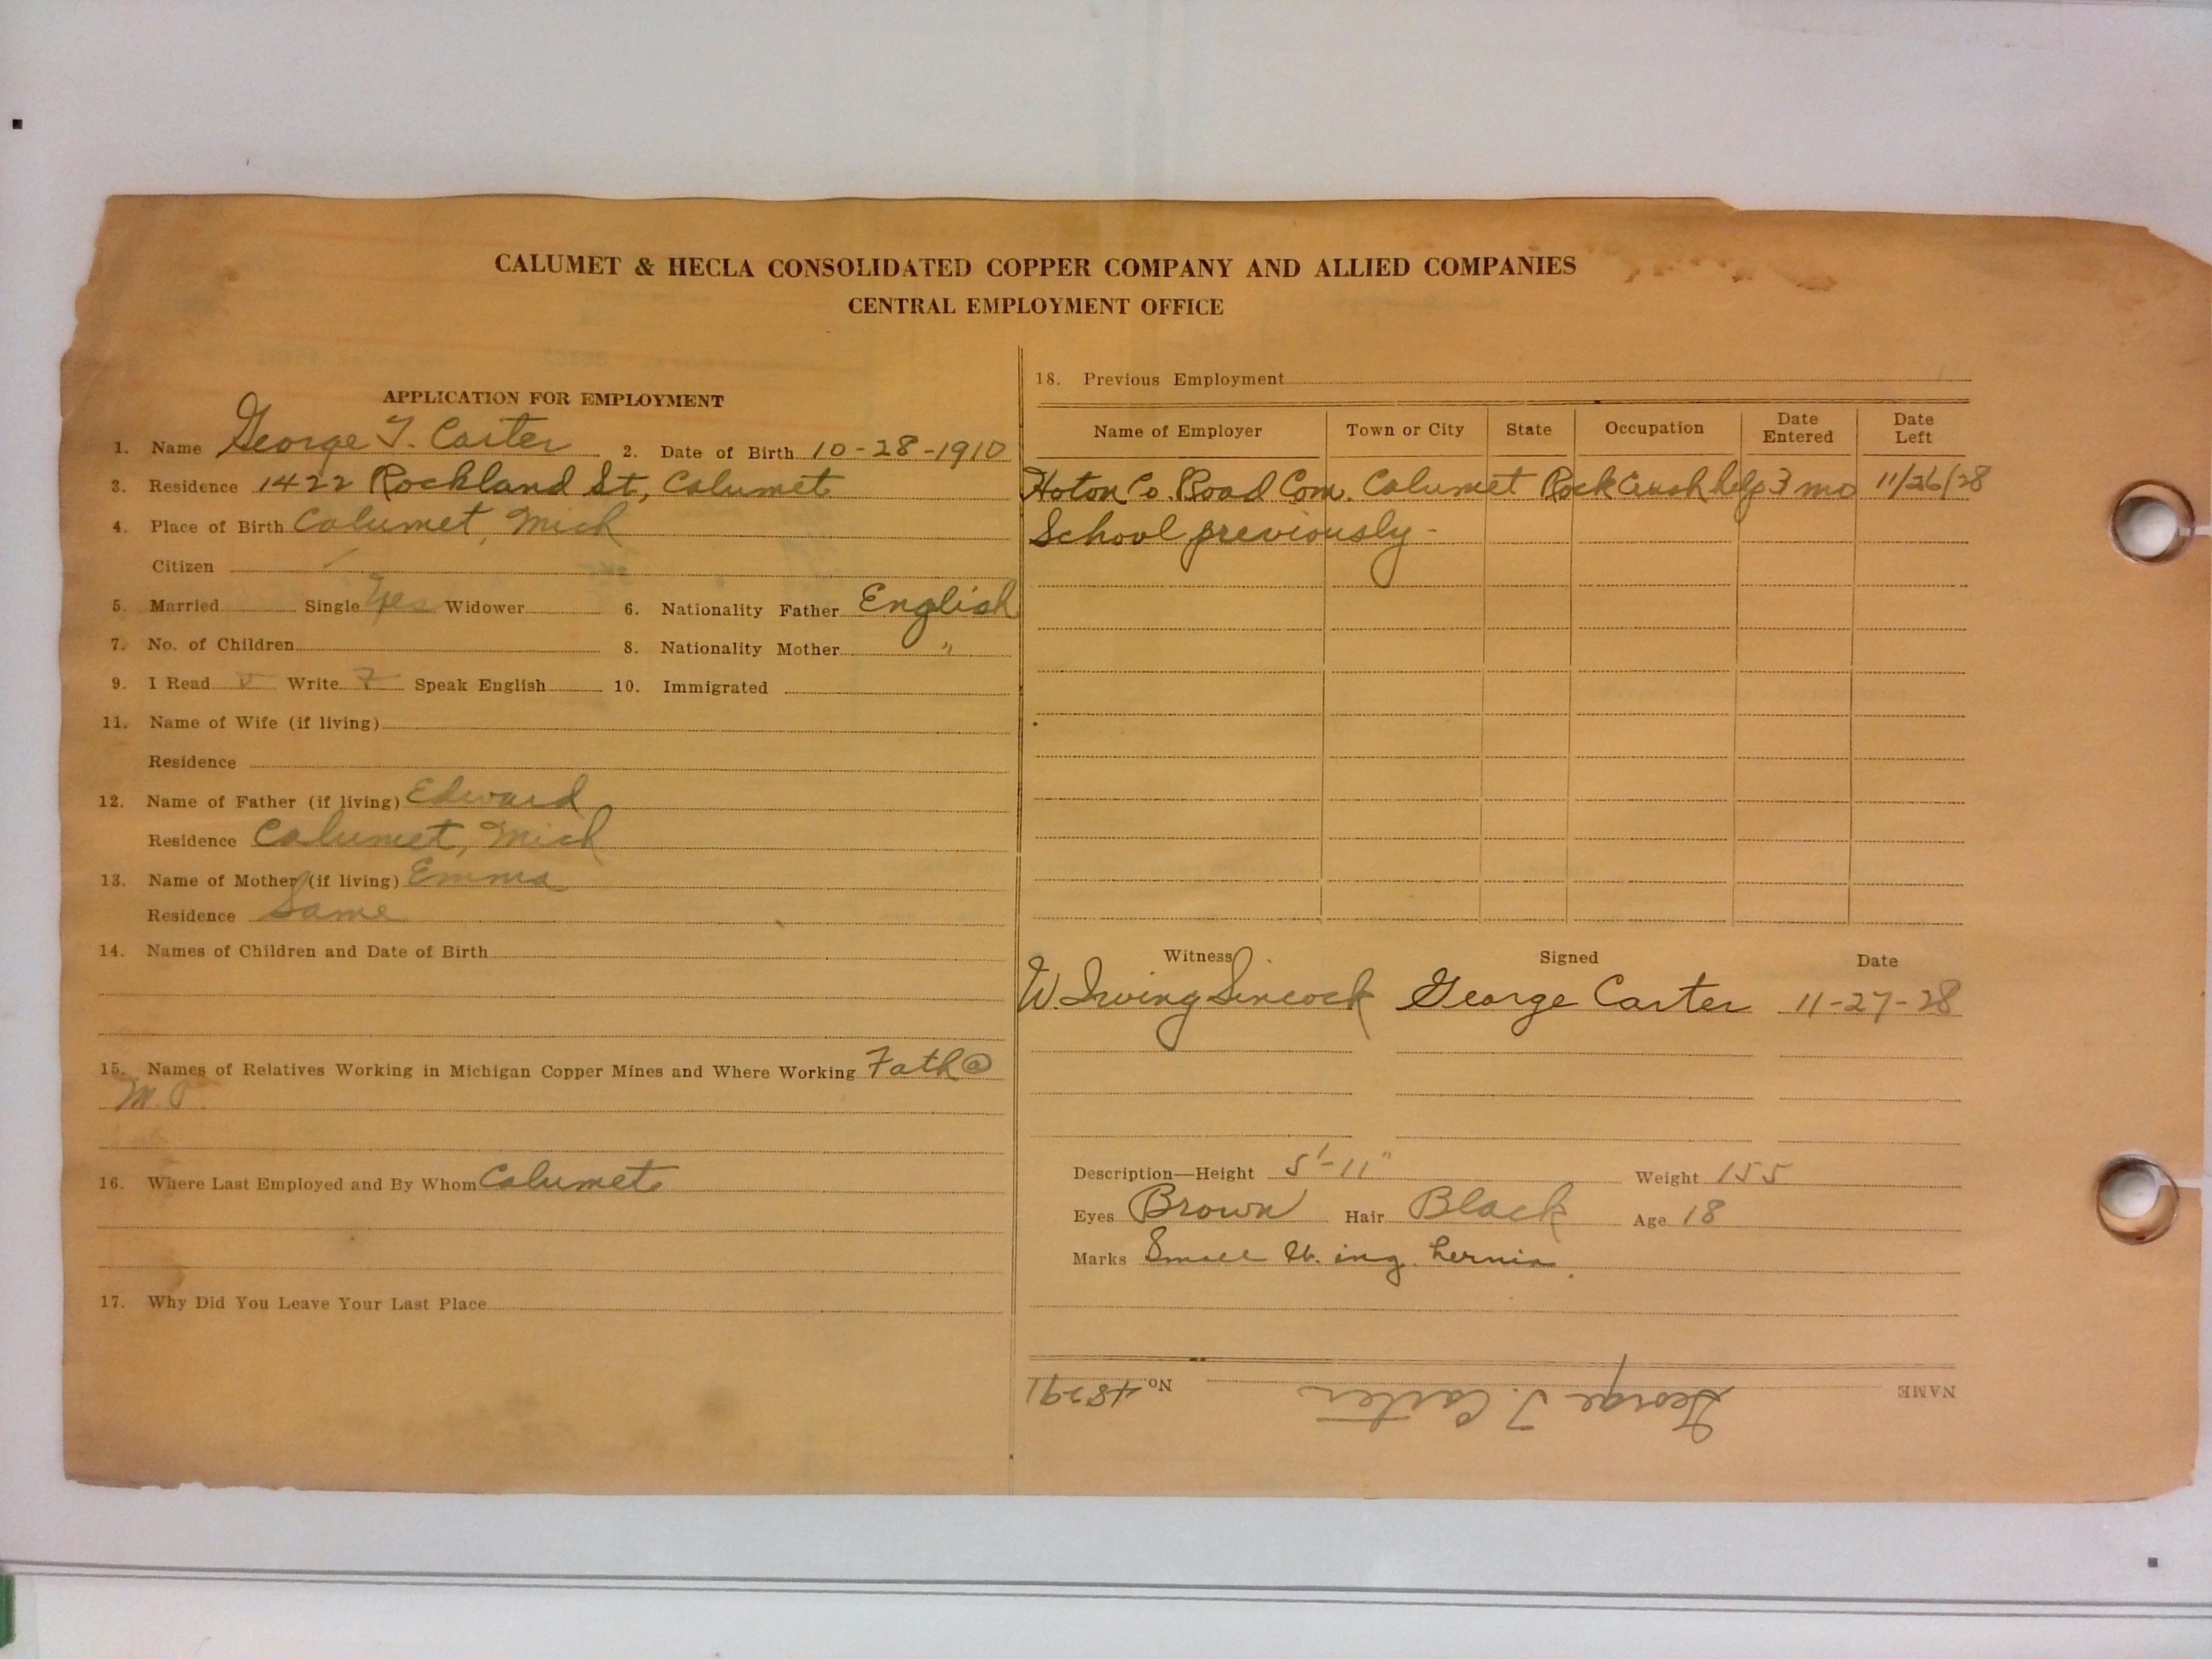 CALUMET & HECLA CONSOLIDATED COPPER COMPANY AND ALLIED COMPANIES
CENTRAL EMPLOYMENT OFFICE
APPLICATION FOR EMPLOYMENT
1. Name George T. Carter 2. Date of Birth 10-28-1910
3. Residence 1422 Rockland St, Calumet
4. Place of Birth Calumet, Mich
Citizen ✓
5. Married Single Yes Widower 6. Nationality Father English
7. No. of Children 8. Nationality Mother "
9. I Read Write Speak English 10. Immigrated
11. Name of Wife (if living)
Residence
12. Name of Father (if living) Edward
Residence Calumet, Mich
13. Name of Mother (if living) Emma
Residence Same
14. Names of Children and Date of Birth
15. Names of Relatives Working in Michigan Copper Mines and Where Working Fath @
M.
16. Where Last Employed and By Whom Calumet
17. Why Did You Leave Your Last Place
18. Previous Employment
Name of Employer Town or City State Occupation Date Entered Date Left
Hoton Co. Road Com. Calumet Rock Crush help 3 mo 11/26/28
School previously -
Witness Signed Date
W. Irving Sincock George Carter 11-27-28
Description—Height 5'-11" Weight 155
Eyes Brown Hair Black Age 18
Marks Small ing. hernia.
NAME George T Carter No. 48291